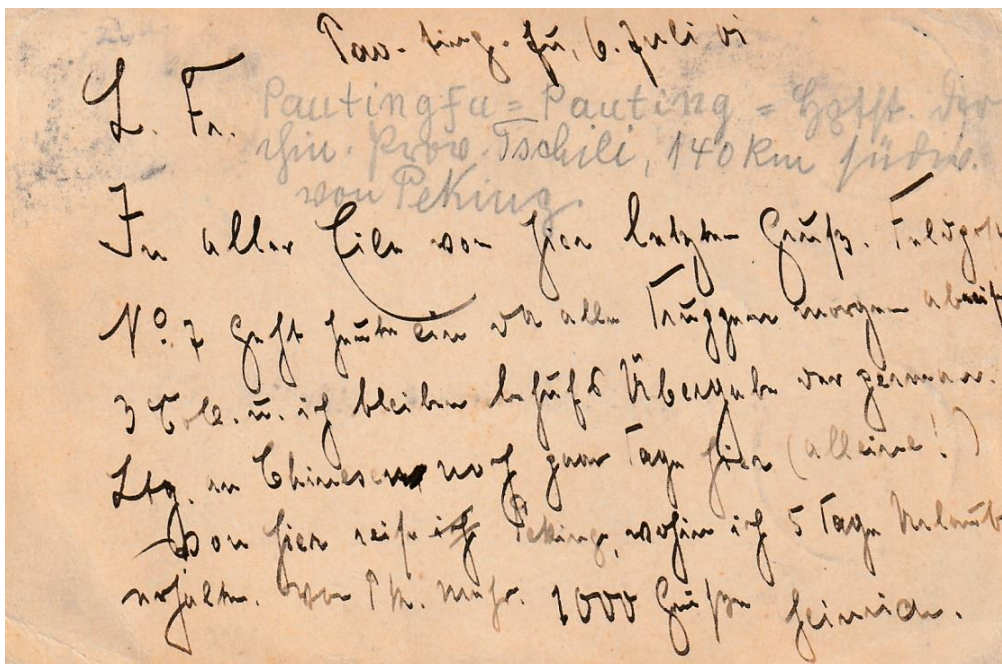 Pao-ting-fu, 6. Juli 01
L. Fr.
Pautingfu = Pauting = Hptst. der
chin. Prov. Tschili, 140 km südw.
von Peking.
In aller Eile von hier letzten Gruß. Feldpost
No. 7 geht heute ein da alle Truppen morgen abreisen
3 u. ich bleiben behufs Übergabe der perman.
Ltg. an Chinesen noch paar Tage hier (alleine!)
Von hier reise ich Peking, wohin ich 5 Tage Urlaub
erhalten. Von Pk. mehr. 1000 Grüße Heinrich.